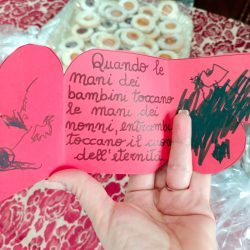 Quando le
mani dei
bambini toccano
le mani dei
nonni, entrambi
toccano il cuore
dell'eternità